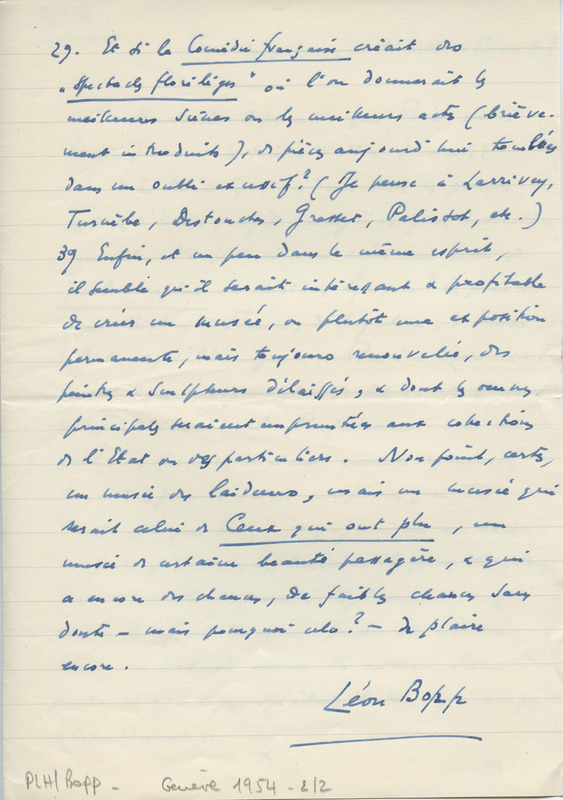 2º. Et si la Comédie française créait des
"spectacles florilèges" où l'on donnerait les
meilleures scènes ou les meilleurs actes (briève-
ment introduits), de pièces aujourd'hui tombées
dans un oubli excessif? (Je pense à Larrivey,
Turnèbe, Destouches, Gresset, Palissot, etc.)
3º Enfin, et un peu dans le même esprit,
il semble qu'il serait intéressant & profitable
de créer un musée, ou plutôt une exposition
permanente, mais toujours renouvelée, des
peintres & sculpteurs délaissés, & dont les œuvres
principales seraient empruntées aux collections
de l'Etat ou des particuliers. Non point, certes,
un musée des laideurs, mais un musée qui
serait celui de Ceux qui ont plu, un
musée de certaine beauté passagère, & qui
a encore des chances, de faibles chances sans
doute – mais pourquoi cela? – de plaire
encore.
Léon Bopp
PLH/Bopp - Genève 1954 - 2/2